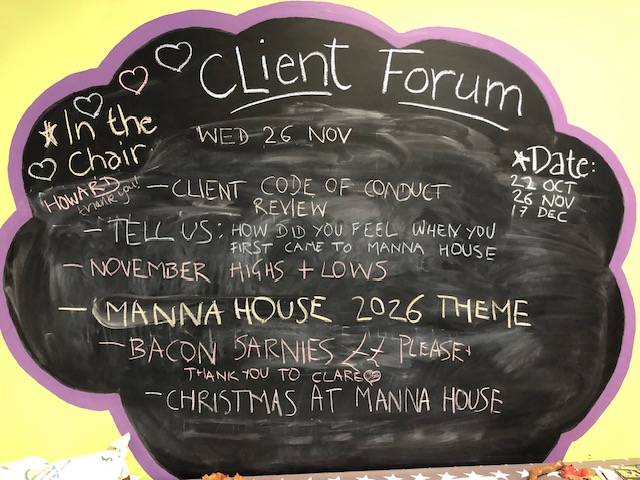 CLient Forum
*In the
Chair
HOWARD
thank you!
WED 26 NOV
*Date:
22 OCT
26 NOV
17 DEC
- CLIENT CODE OF CONDUCT
REVIEW
- TELL US: HOW DID YOU FEEL WHEN YOU
FIRST CAME TO MANNA HOUSE
- NOVEMBER HIGHS + LOWS
- MANNA HOUSE 2026 THEME
- BACON SARNIES PLEASE
THANK YOU TO CLARE
- CHRISTMAS AT MANNA HOUSE